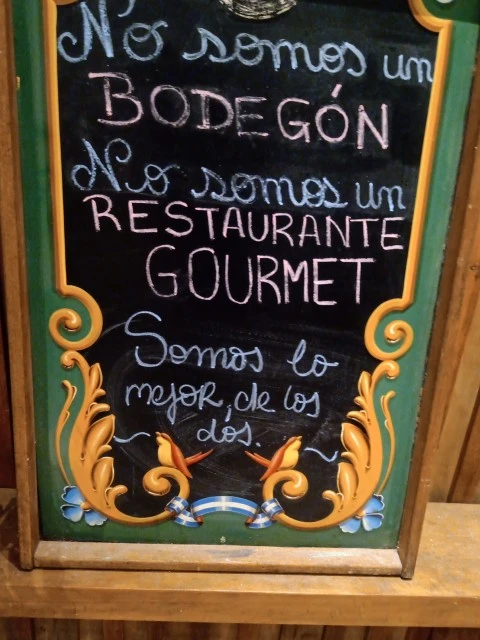 No somos un
BODEGÓN
No somos un
RESTAURANTE
GOURMET
Somos lo
mejoR, de los
dos.